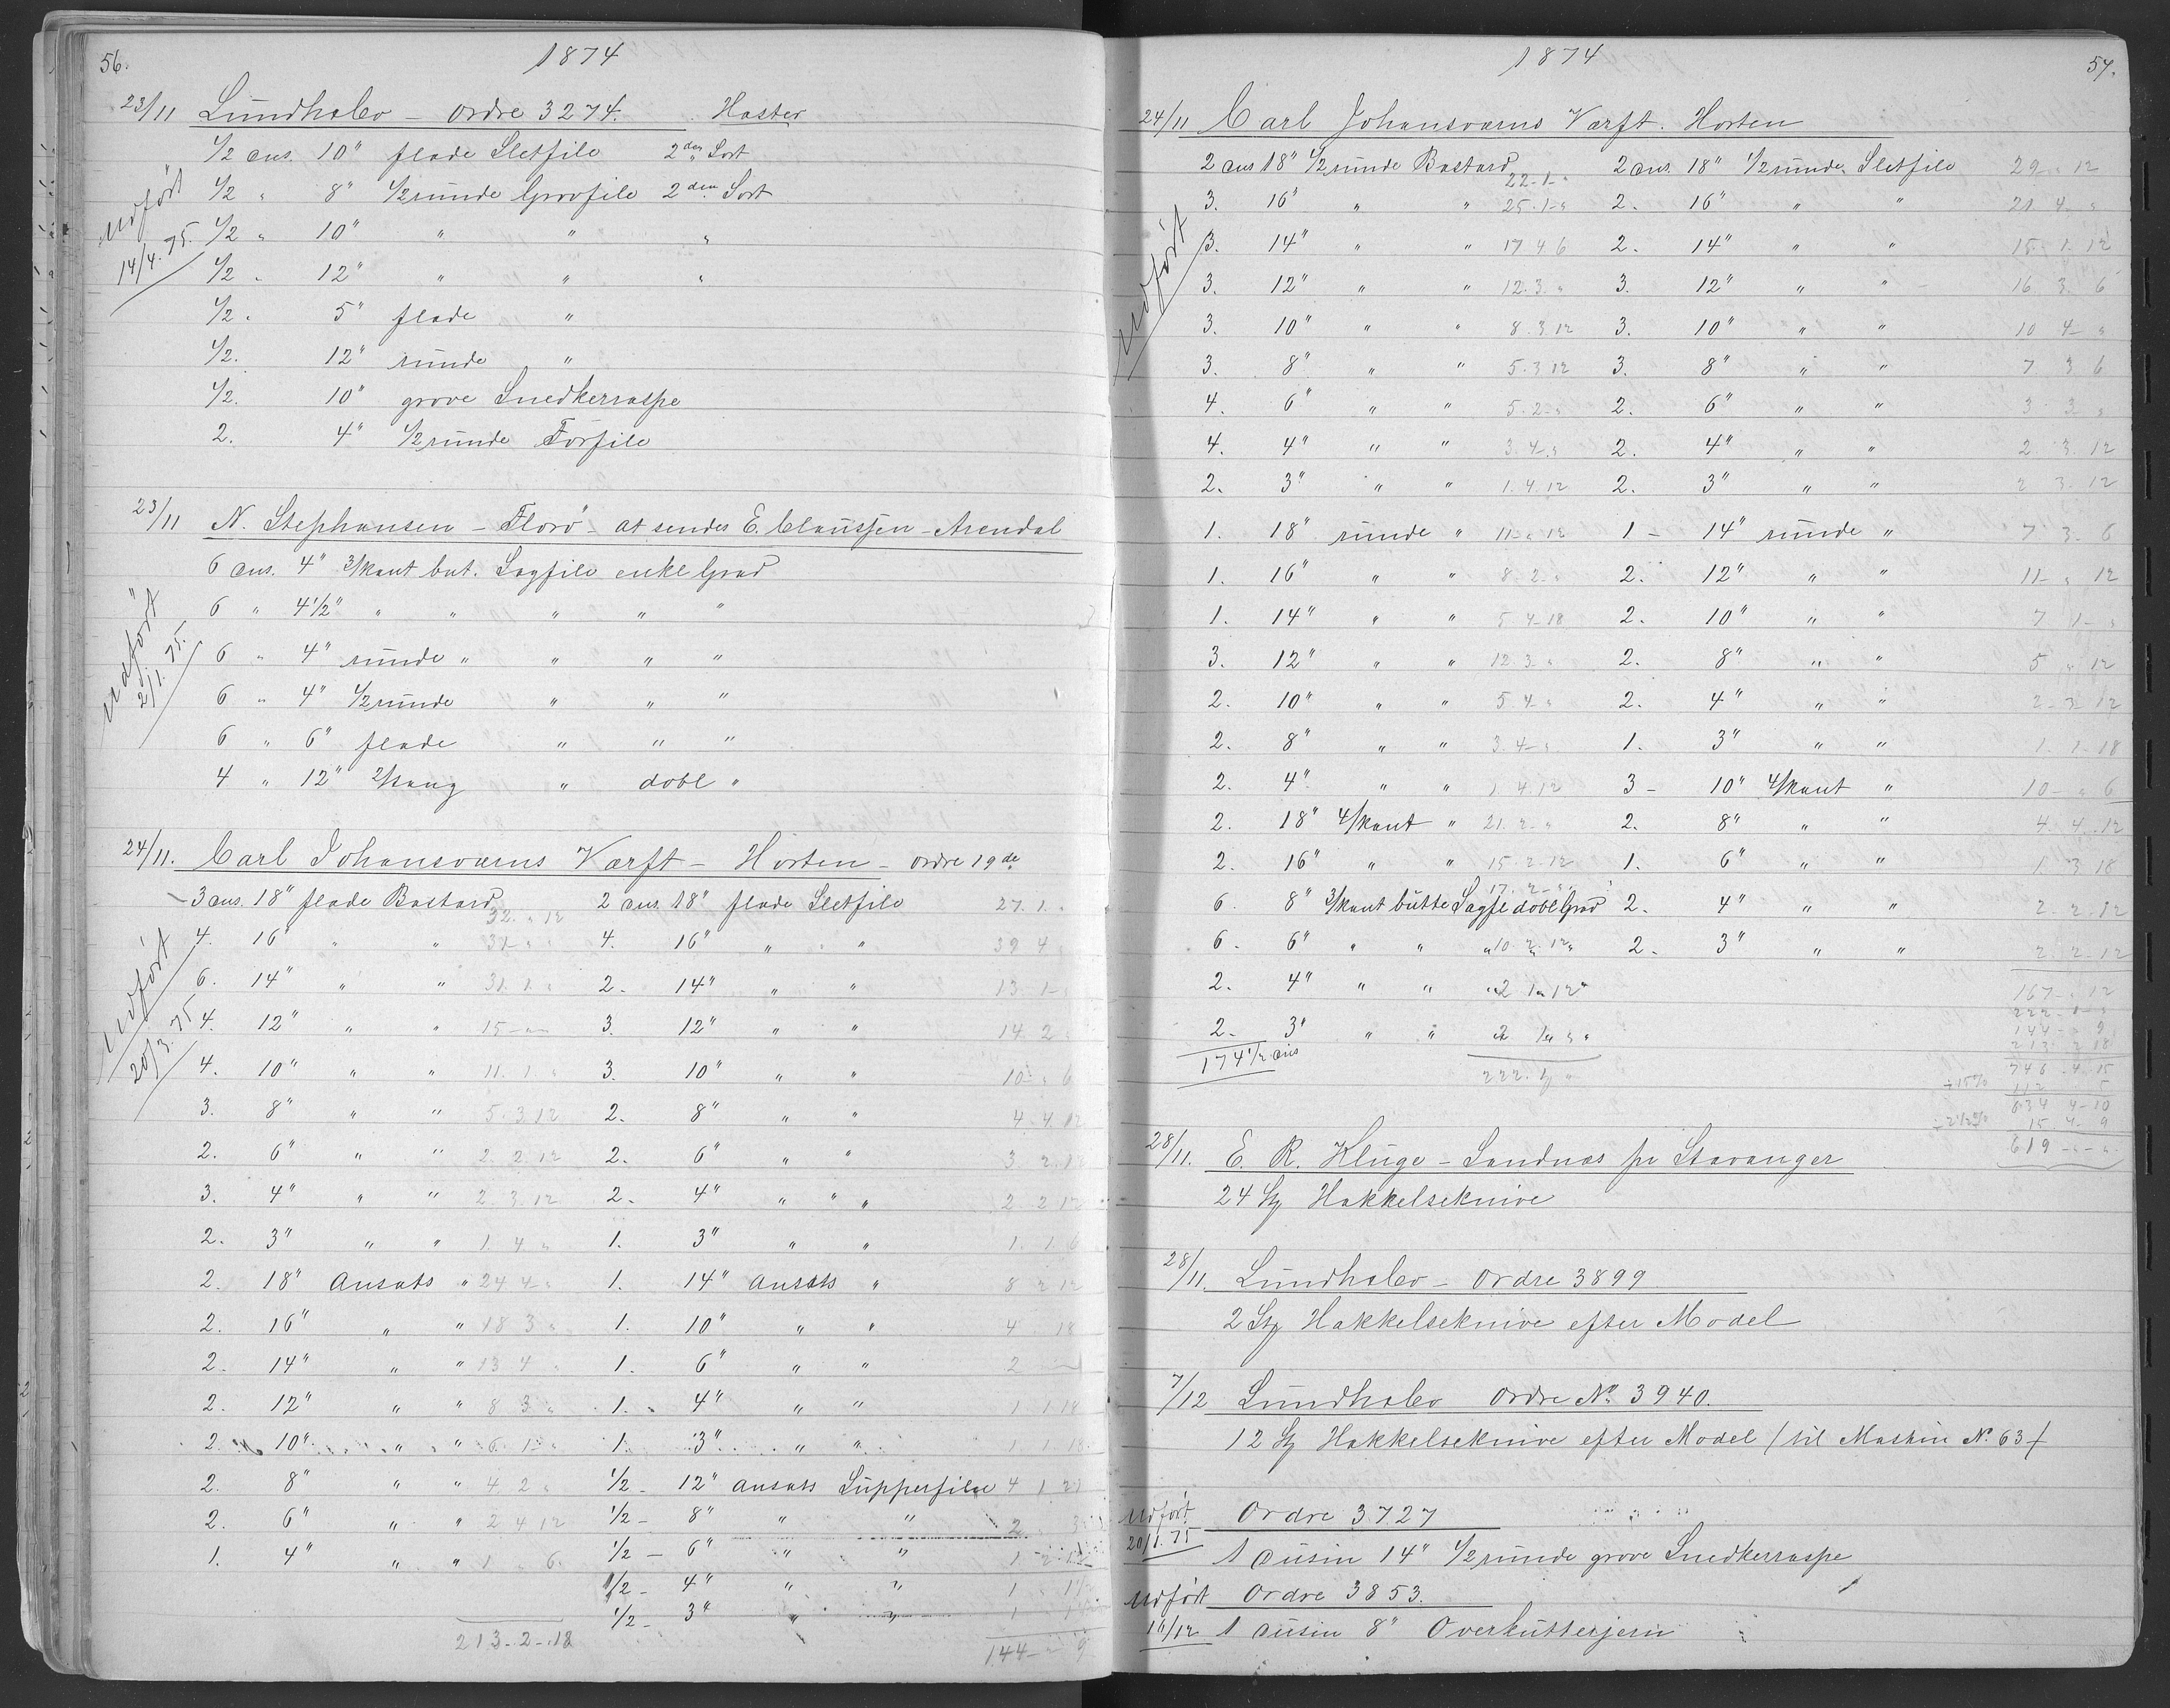 56.
1874
23/11 Lundhalev – Ordre 3274. Haster
1/2 dus. 10" flade Sletfile 2den Sort
1/2 " 8" 1/2 runde Grovfile 2den Sort
1/2 " 10" " " "
1/2 " 12" " " "
1/2 " 5" flade "
1/2. 12" runde "
1/2. 10" grove Snedkerraspe
2. 4" 1/2 runde Forfile
Udført
14/4. 75.
23/11 N. Stephansen – Florø – at sendes E. Claussen – Arendal
6 dus. 4" 3/kant but. Sagfile enkel Grad
6 " 4 1/2" " " " " "
6 " 4" runde " " " "
6 " 4" 1/2 runde " " "
6 " 6" flade " " "
4 " 12" " dobl "
udført
2/1. 75.
24/11. Carl Johansværns Værft – Horten – ordre 19de
3 dus. 18" flade Bastard 32. " 12 2 dus. 18" flade Sletfile 27. 1. "
4. 16" " " 4. 16" " " 39 4 "
6. 14" " " 31. 1. " 2. 14" " " 13. 1 –
4. 12" " " 15 – " – 3. 12" " " 14. 2 "
4. 10" " " 11. 1 " 3. 10" " " 10 " 6
3. 8" " " 5. 3 12 2. 8" " " 4. 4. 12
2. 6" " " 2. 2. 12 2. 6" " " 3. 2. 12
3. 4" " " 2. 3. 12 2. 4" " " " 2. 2 12
2. 3" " " 1. 4 " 1. 3" " " 1. 1. 6
2. 18" Ansats " 24 4 – " 1. 14" ansats " 8 2 12
2. 16" " " 18 3 " 1. 10" " " 4 18
2. 14" " " 13 4 " 1. 6" " " 2
2. 12" " " 8 3 " 1. 4" " " 1 1 18
2. 10" " " 6. 1 – " 1. 3" " " 1 1 18
2. 8" " " 4 2 " 1/2 – 12" ansats Supperfile 4 1
2. 6" " " 2 4 12 1/2 – 8" " " 2
1. 4" " " 1 " 6. 1/2 – 6" " " 1
1/2 – 4" " " 1
1/2 – 3" " " 1
213 – 2 – 18 144 – " 9
udført
20/3. 75
1874
57.
24/11 Carl Johansværns Værft. Horten
2 dus 18" 1/2 runde Bastard 22 – 1 – " 2 dus. 18" 1/2 runde Sletfile 29 " 12
3. 16" " " 25. 1 – " 2. 16" " " 21. 4. "
3. 14" " " 17 4 6 2. 14" " " 15. 1. 12
3. 12" " " 12. 3. " 3. 12" " " 16. 3. 6
3. 10" " " 8. 3 12 3. 10" " " 10 4 – "
3. 8" " " 5. 3 12 3. 8" " " 7 3 6
4. 6" " " 5. 2 – " 2. 6" " " 3 3 "
4. 4" " " 3. 4 – " 2. 4" " " 2. 3. 12
2. 3" " " 1. 4. 12 2. 3" " " 2 3. 12
1. 18" runde " 11 – " 12 1 – 14" runde " 7 3. 6
1. 16" " " 8. 2 – " 2. 12" " " 11 – " 12
1. 14" " " 5. 4 – 18 2. 10" " " 7 1 – "
3. 12" " " 12. 3. " 2. 8" " " 5 " 12
2. 10" " " 5. 4 " 2. 4" " " 2 – 3 – 12
2. 8" " " 3. 4 – " 1. 3" " " 1. 1 – 18
2. 4" " " 1. 4. 12 3 – 10" 4/kant " 10 – " 6
2. 18" 4/kant " 21. 2 – " 2. 8" " " 4 4 . 12
2. 16" " " 15 – 2 – 12 1. 6" " " 1 3 18
6. 8" 3/kant butte Sagfl dobl Grad 17. 2 – " 2. 4" " " 2 – 2 – 12
6. 6" " " " 10. 2. 12 2. 3" " " 2. 2 – 12
2. 4" " " " 2 1 12
2. 3" " "
174 1/2 dus
222. 1 "
167 – " 12
222 – 1 – "
144 – " 9
213 2 18
746 – 4. 15
÷ 15% 112 5
634 4 – 10
÷ 2 1/2 % 15 4 – 9
619 – " – "
udført
28/11. E. R. Kluge – Sandnæs pr Stavanger
24 St Hakkelseknive
28/11. Lundhalev – Ordre 3899
2 St Hakkelseknive efter Model
7/12 Lundhalev Ordre No 3940.
12 St Hakkelseknive efter Model / til Maskin No. 63 /
Udført 20/1. 75
Ordre 3727
1 dusin 14" 1/2 runde grove Snedkerraspe
Udført 16/12
Ordre 3853.
1 dusin 8" Overkutterjern